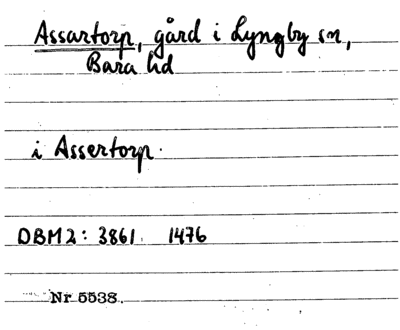 Assartorp, gård i Lyngby sn,
Bara hd
i Assertorp.
DBM2: 3861. 1476
Nr 5538.